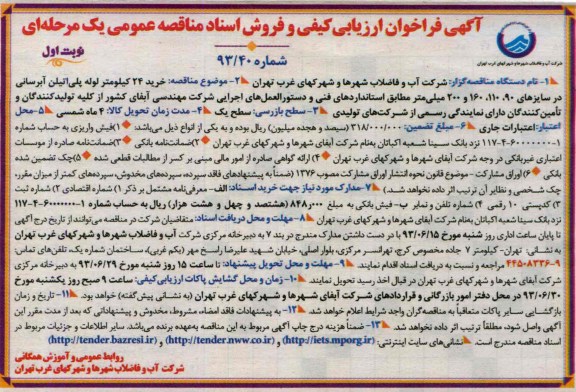 آگهی فراخوان ارزیابی کیفی و فروش اسناد مناقصه عمومی یک مرحله‌ای
شماره ۹۳/۴۰
نوبت اول
شرکت آب و فاضلاب شهرها و شهرکهای غرب تهران
۱- نام دستگاه مناقصه‌گزار: شرکت آب و فاضلاب شهرها و شهرکهای غرب تهران ۲- موضوع مناقصه: خرید ۲۴ کیلومتر لوله پلی‌اتیلن آبرسانی
در سایزهای ۹۰، ۱۱۰، ۱۶۰ و ۲۰۰ میلی‌متر مطابق استانداردهای فنی و دستورالعمل‌های اجرایی شرکت مهندسی آبفای کشور از کلیه تولیدکنندگان و
تأمین‌کنندگان دارای نمایندگی رسمی از شرکت‌های تولیدی ۳- سطح بازرسی: سطح یک ۴- مدت زمان تحویل کالا: ۴ ماه شمسی ۵- محل
اعتبار: اعتبارات جاری ۶- مبلغ تضمین: ۳۱۸/۰۰۰/۰۰۰ (سیصد و هجده میلیون) ریال بوده و به یکی از انواع ذیل می‌باشد: ۱) فیش واریزی به حساب شماره
۱۱۷-۴-۶۰۰۰۰۰۰-۱ نزد بانک سینا شعبه اکباتان بنام شرکت آبفای شهرها و شهرکهای غرب تهران ۲) ضمانت‌نامه بانکی ۳) ضمانت‌نامه صادره از موسسات
اعتباری غیربانکی در وجه شرکت آبفای شهرها و شهرکهای غرب تهران ۴) ارائه گواهی صادره از امور مالی مبنی بر کسر از مطالبات قطعی شده ۵) چک تضمین شده
بانکی ۶) اوراق مشارکت - موضوع قانون نحوه انتشار اوراق مشارکت مصوب ۱۳۷۶ (ضمناً به پیشنهادهای فاقد سپرده، سپرده‌های مخدوش، سپرده‌های کمتر از میزان مقرر،
چک شخصی و نظایر آن ترتیب اثر داده نخواهد شد.) ۷- مدارک مورد نیاز جهت خرید اسناد: الف - معرفی‌نامه مشتمل بر ذکر ۱) شماره اقتصادی ۲) شماره ثبت
۳) کدپستی ۱۰ رقمی ۴) شماره تلفن و نمابر ب- فیش بانکی به مبلغ ۸۴۸٫۰۰۰ (هشتصد و چهل و هشت هزار) ریال به حساب شماره ۱-۶۰۰۰۰۰۰-۴-۱۱۷
نزد بانک سینا شعبه اکباتان بنام شرکت آبفای شهرها و شهرکهای غرب تهران ۸- مهلت و محل دریافت اسناد: متقاضیان شرکت در مناقصه می‌توانند از تاریخ درج آگهی
تا پایان ساعت اداری روز شنبه مورخ ۹۳/۰۶/۱۵ با در دست داشتن مدارک مندرج در بند ۷ به دبیرخانه مرکزی شرکت آب و فاضلاب شهرها و شهرکهای غرب تهران
به نشانی: تهران - کیلومتر ۷ جاده مخصوص کرج، تهرانسر مرکزی، بلوار اصلی، خیابان شهید علیرضا راسخ مهر (یکم غربی)، ساختمان شماره یک، تلفن‌های تماس:
۹-۴۴۵۰۸۳۳۶ مراجعه و نسبت به دریافت اسناد اقدام نمایند. ۹- مهلت و محل تحویل پیشنهاد: تا ساعت ۱۵ روز شنبه مورخ ۹۳/۰۶/۲۹ به دبیرخانه مرکزی
شرکت آبفای شهرها و شهرکهای غرب تهران در قبال اخذ رسید تحویل نمایند. ۱۰- زمان و محل گشایش پاکات ارزیابی کیفی: ساعت ۹ صبح روز یکشنبه مورخ
۹۳/۰۶/۳۰ در محل دفتر امور بازرگانی و قراردادهای شرکت آبفای شهرها و شهرکهای غرب تهران (به نشانی پیش گفته) خواهد بود. ۱۱- تاریخ و زمان
بازگشایی سایر پاکات متعاقباً به مناقصه‌گران واجد شرایط اعلام خواهد شد. ۱۲- به پیشنهادات فاقد امضاء، مشروط، مخدوش و پیشنهاداتی که بعد از مدت مقرر این
آگهی واصل شود، مطلقاً ترتیب اثر داده نخواهد شد. ۱۳- ضمناً هزینه درج چاپ آگهی مربوط به این مناقصه به‌عهده برنده می‌باشد. سایر اطلاعات و جزئیات مربوط در
اسناد مناقصه مندرج است. نشانی‌های سایت اینترنتی: (http://iets.mporg.ir) و (http://tender.nww.co.ir) و (http://tender.bazresi.ir)
روابط عمومی و آموزش همگانی
شرکت آب و فاضلاب شهرها و شهرکهای غرب تهران